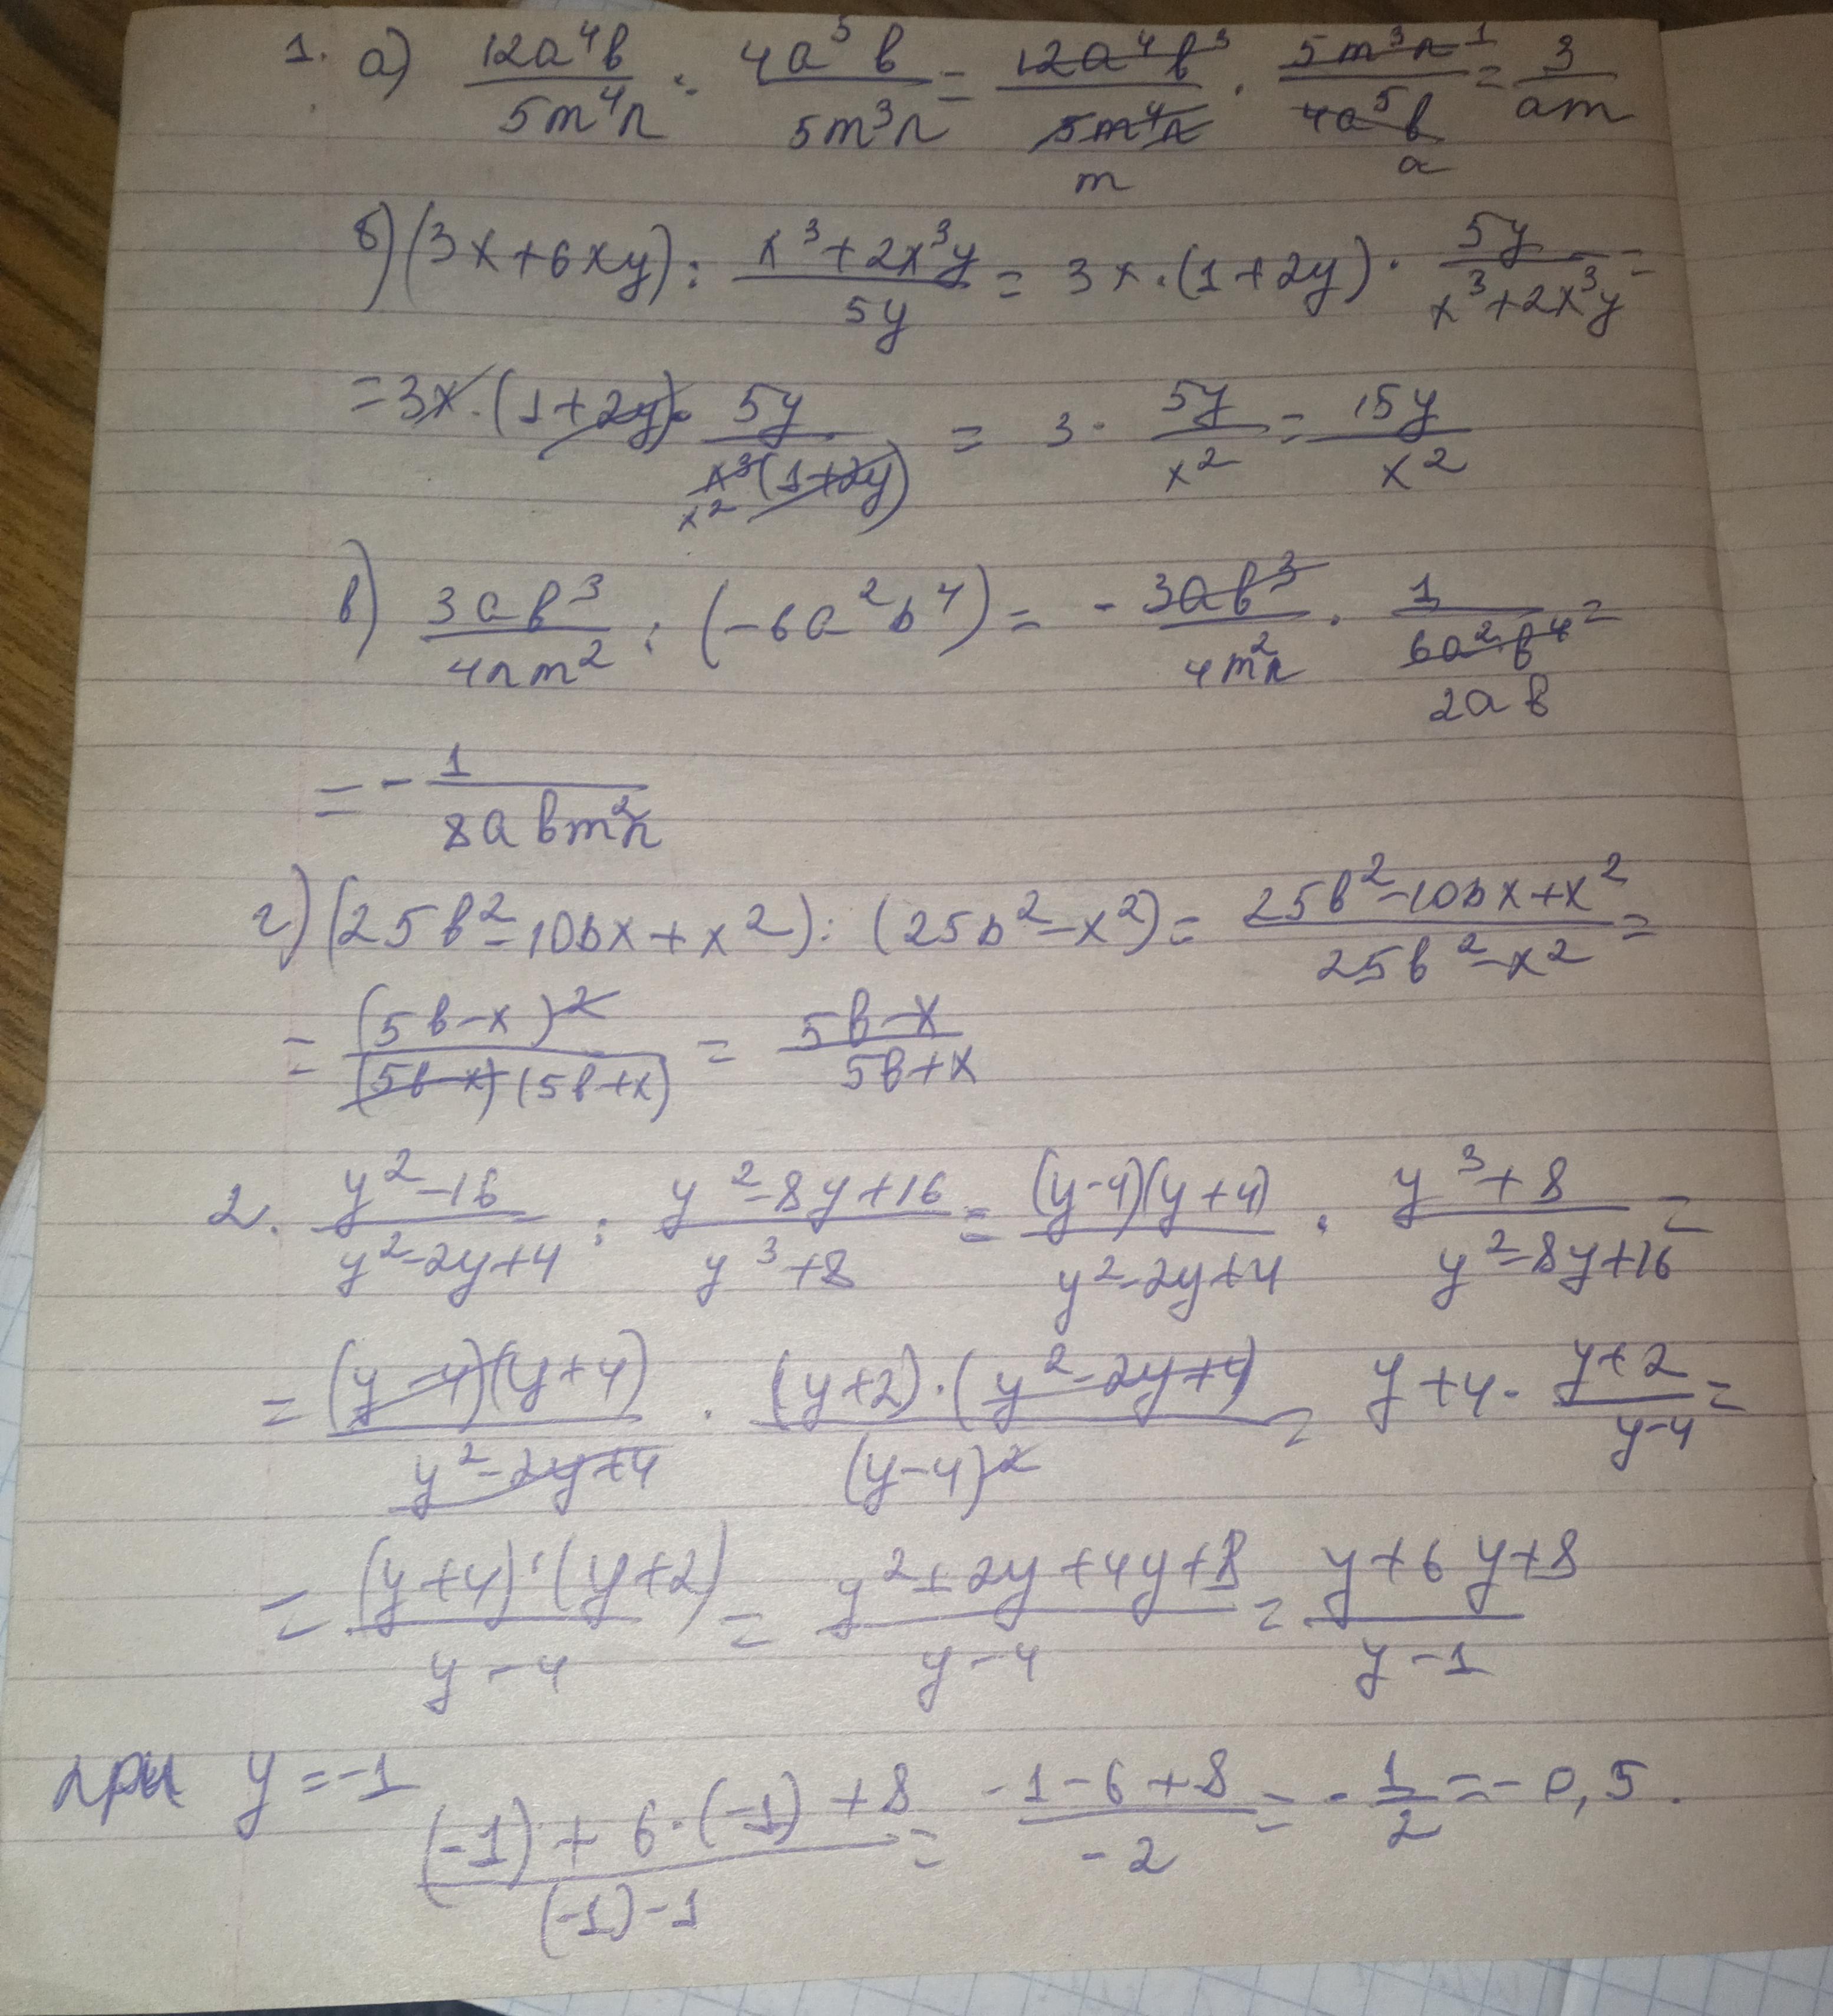 1. а) 12a⁴b/5m⁴n : 4a⁵b/5m³n = 12a⁴b 3/5m⁴n m · 5m³n 1/4a⁵b a = 3/am
б) (3x+6xy) : x³+2x³y/5y = 3x·(1+2y) · 5y/x³+2x³y =
= 3x·(1+2y)· 5y/x³(1+2y) x² = 3 · 5y/x² = 15y/x²
в) 3ab³/4nm² : (-6a²b⁴) = - 3ab³/4m²n · 1/6a²b⁴ 2ab =
= - 1/8abm²n
г) (25b²-10bx+x²) : (25b²-x²) = 25b²-10bx+x²/25b²-x² =
= (5b-x)²/(5b-x)(5b+x) = 5b-x/5b+x
2. y²-16/y²-2y+4 : y²-8y+16/y³+8 = (y-4)(y+4)/y²-2y+4 · y³+8/y²-8y+16 =
= (y-4)(y+4)/y²-2y+4 · (y+2)·(y²-2y+4)/(y-4)² = y+4 · y+2/y-4 =
= (y+4)·(y+2)/y-4 = y²+2y+4y+8/y-4 = y+6y+8/y-1
при y=-1 (-1)+6·(-1)+8/(-1)-1 = -1-6+8/-2 = -1/2 = -0,5.